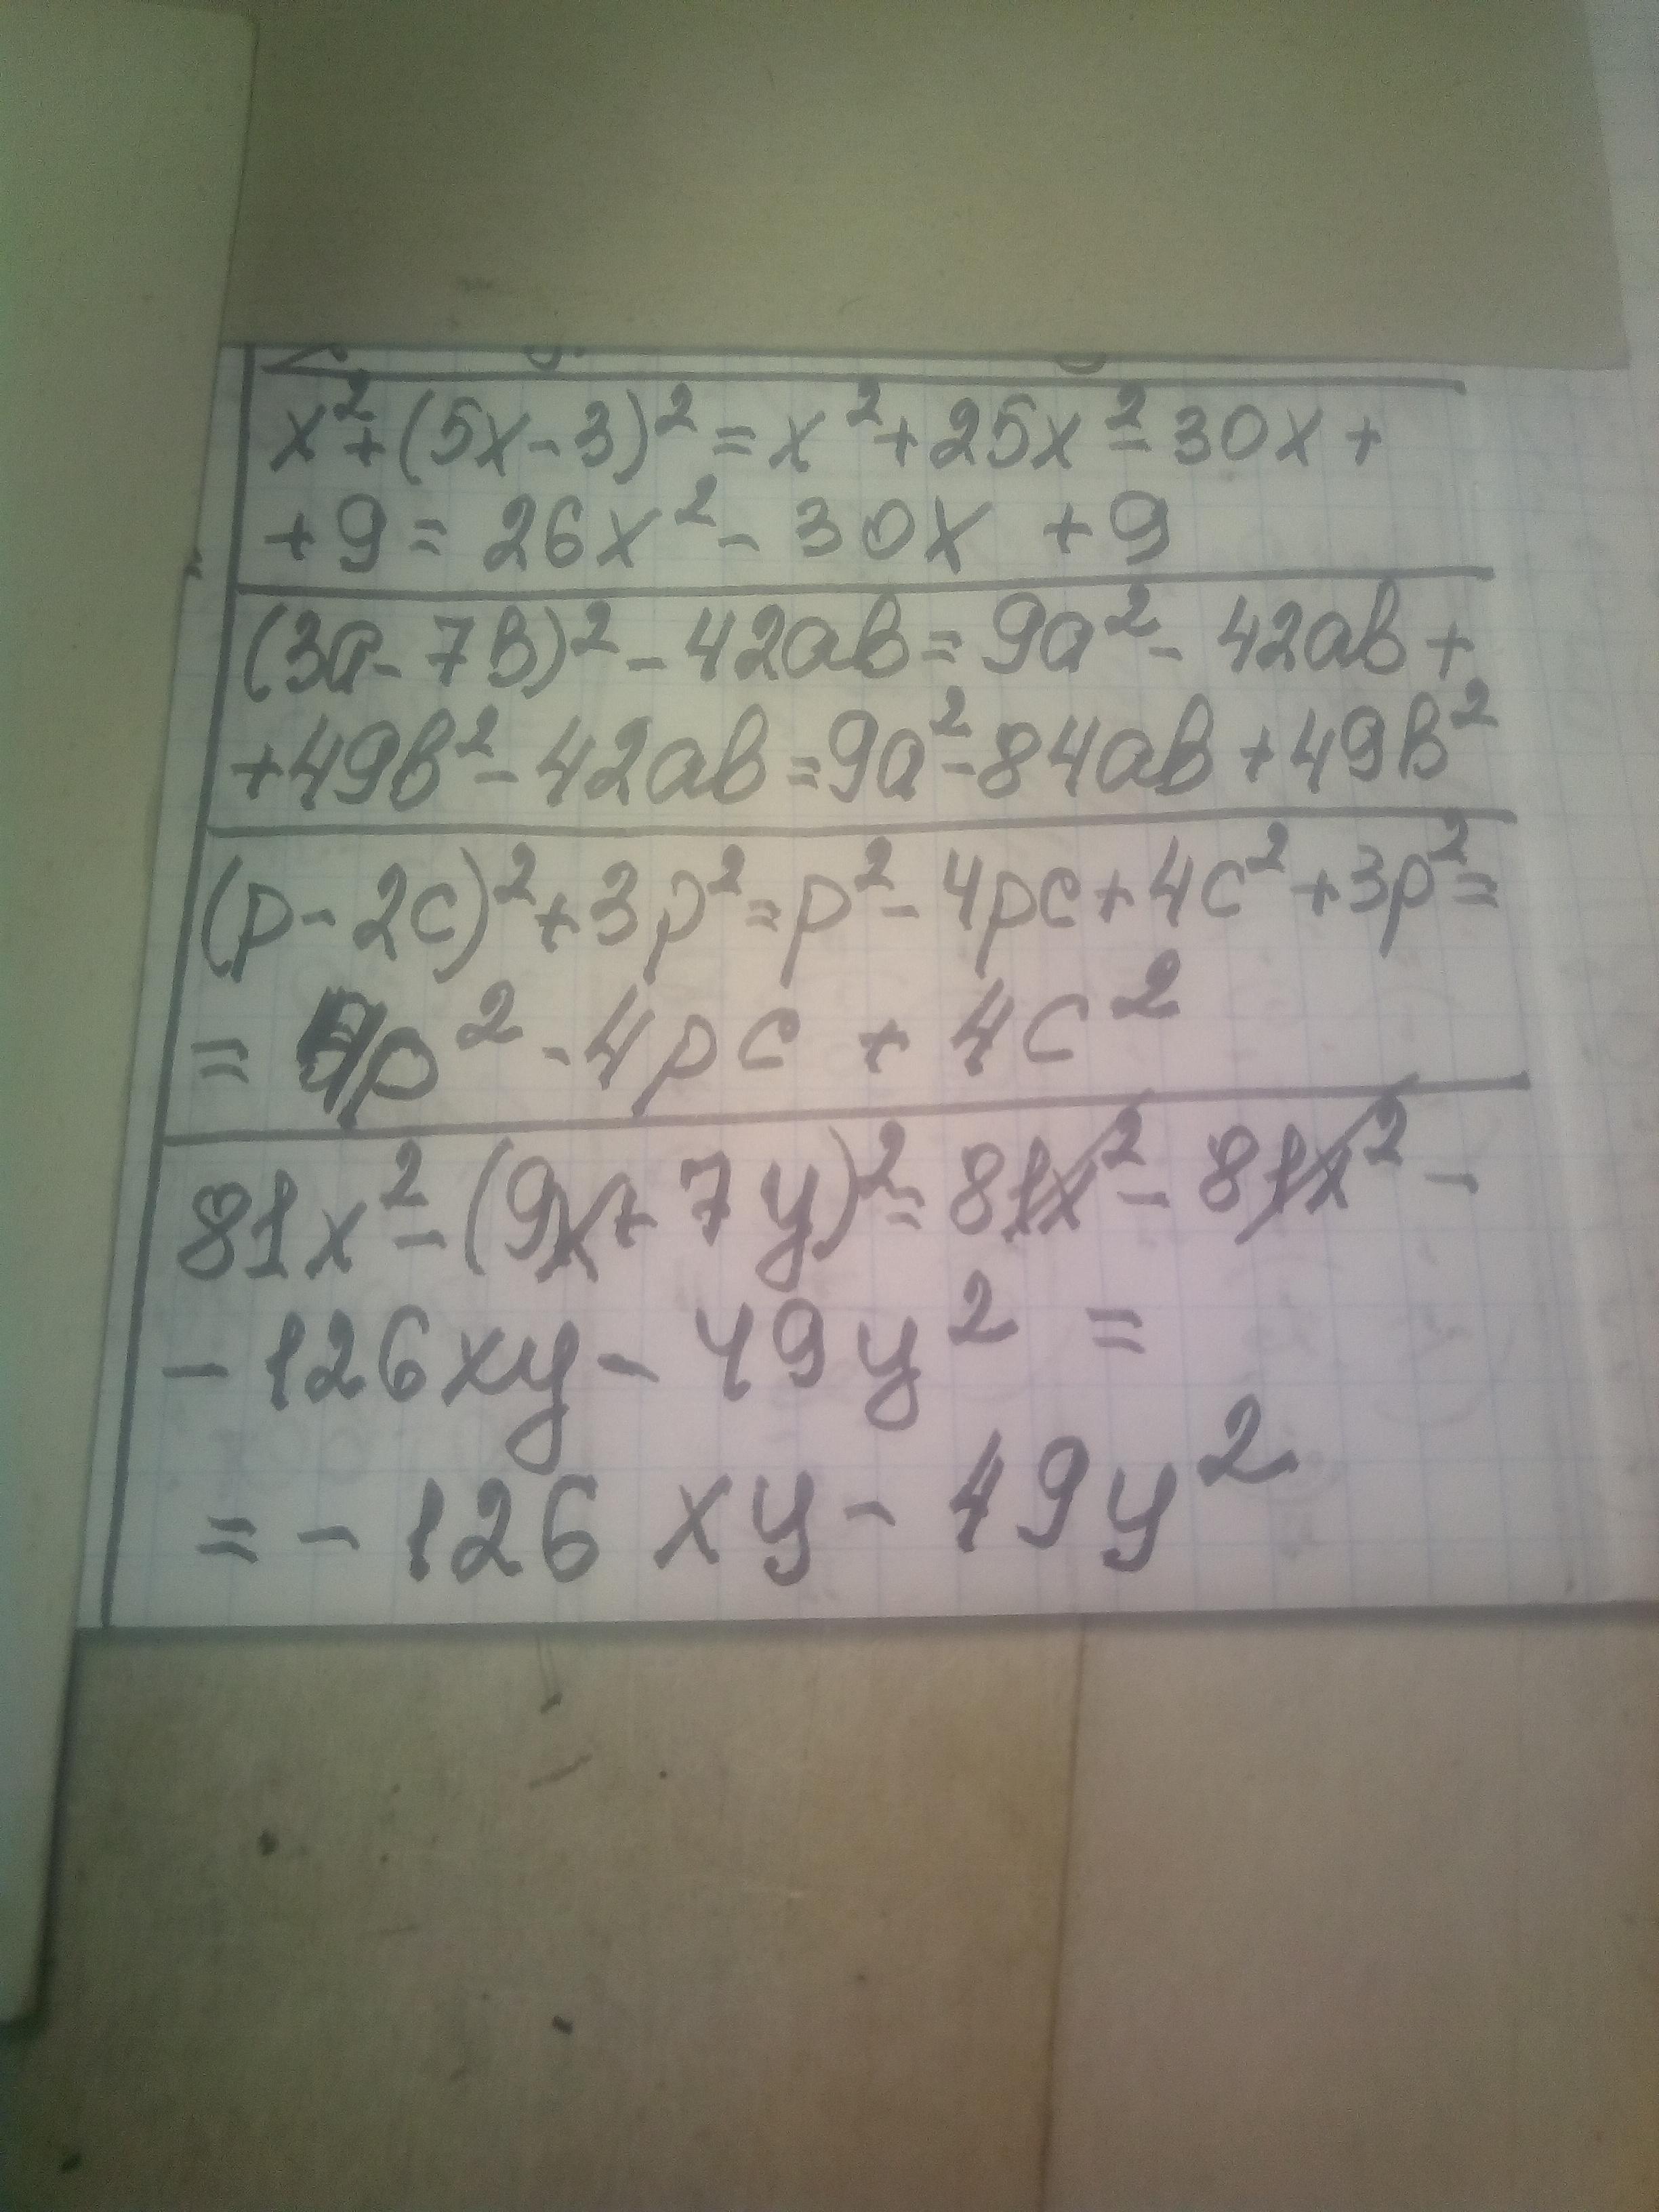 x²+(5x-3)²=x²+25x²-30x+
+9=26x²-30x +9
(3a-7b)²-42ab=9a²-42ab+
+49b²-42ab=9a²-84ab+49b²
(p-2c)²+3p²=p²-4pc+4c²+3p²=
=4p²-4pc+4c²
81x²-(9x+7y)²=81x²-81x²-
-126xy-49y²=
=-126xy-49y²